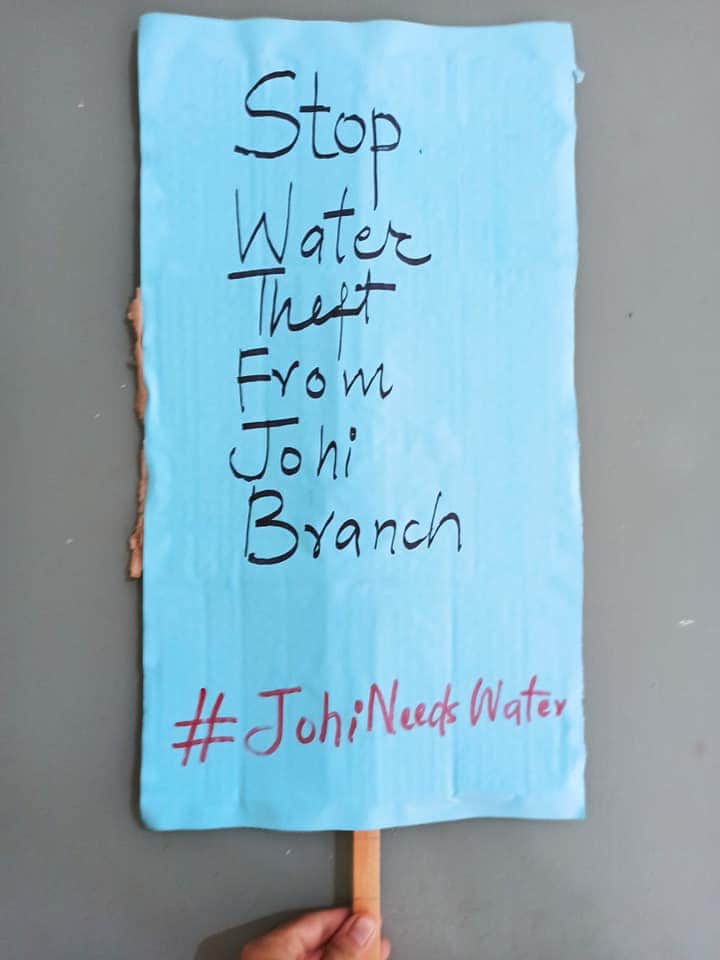 Stop
Water
Theft
From
Johi
Branch
#JohiNeedsWater